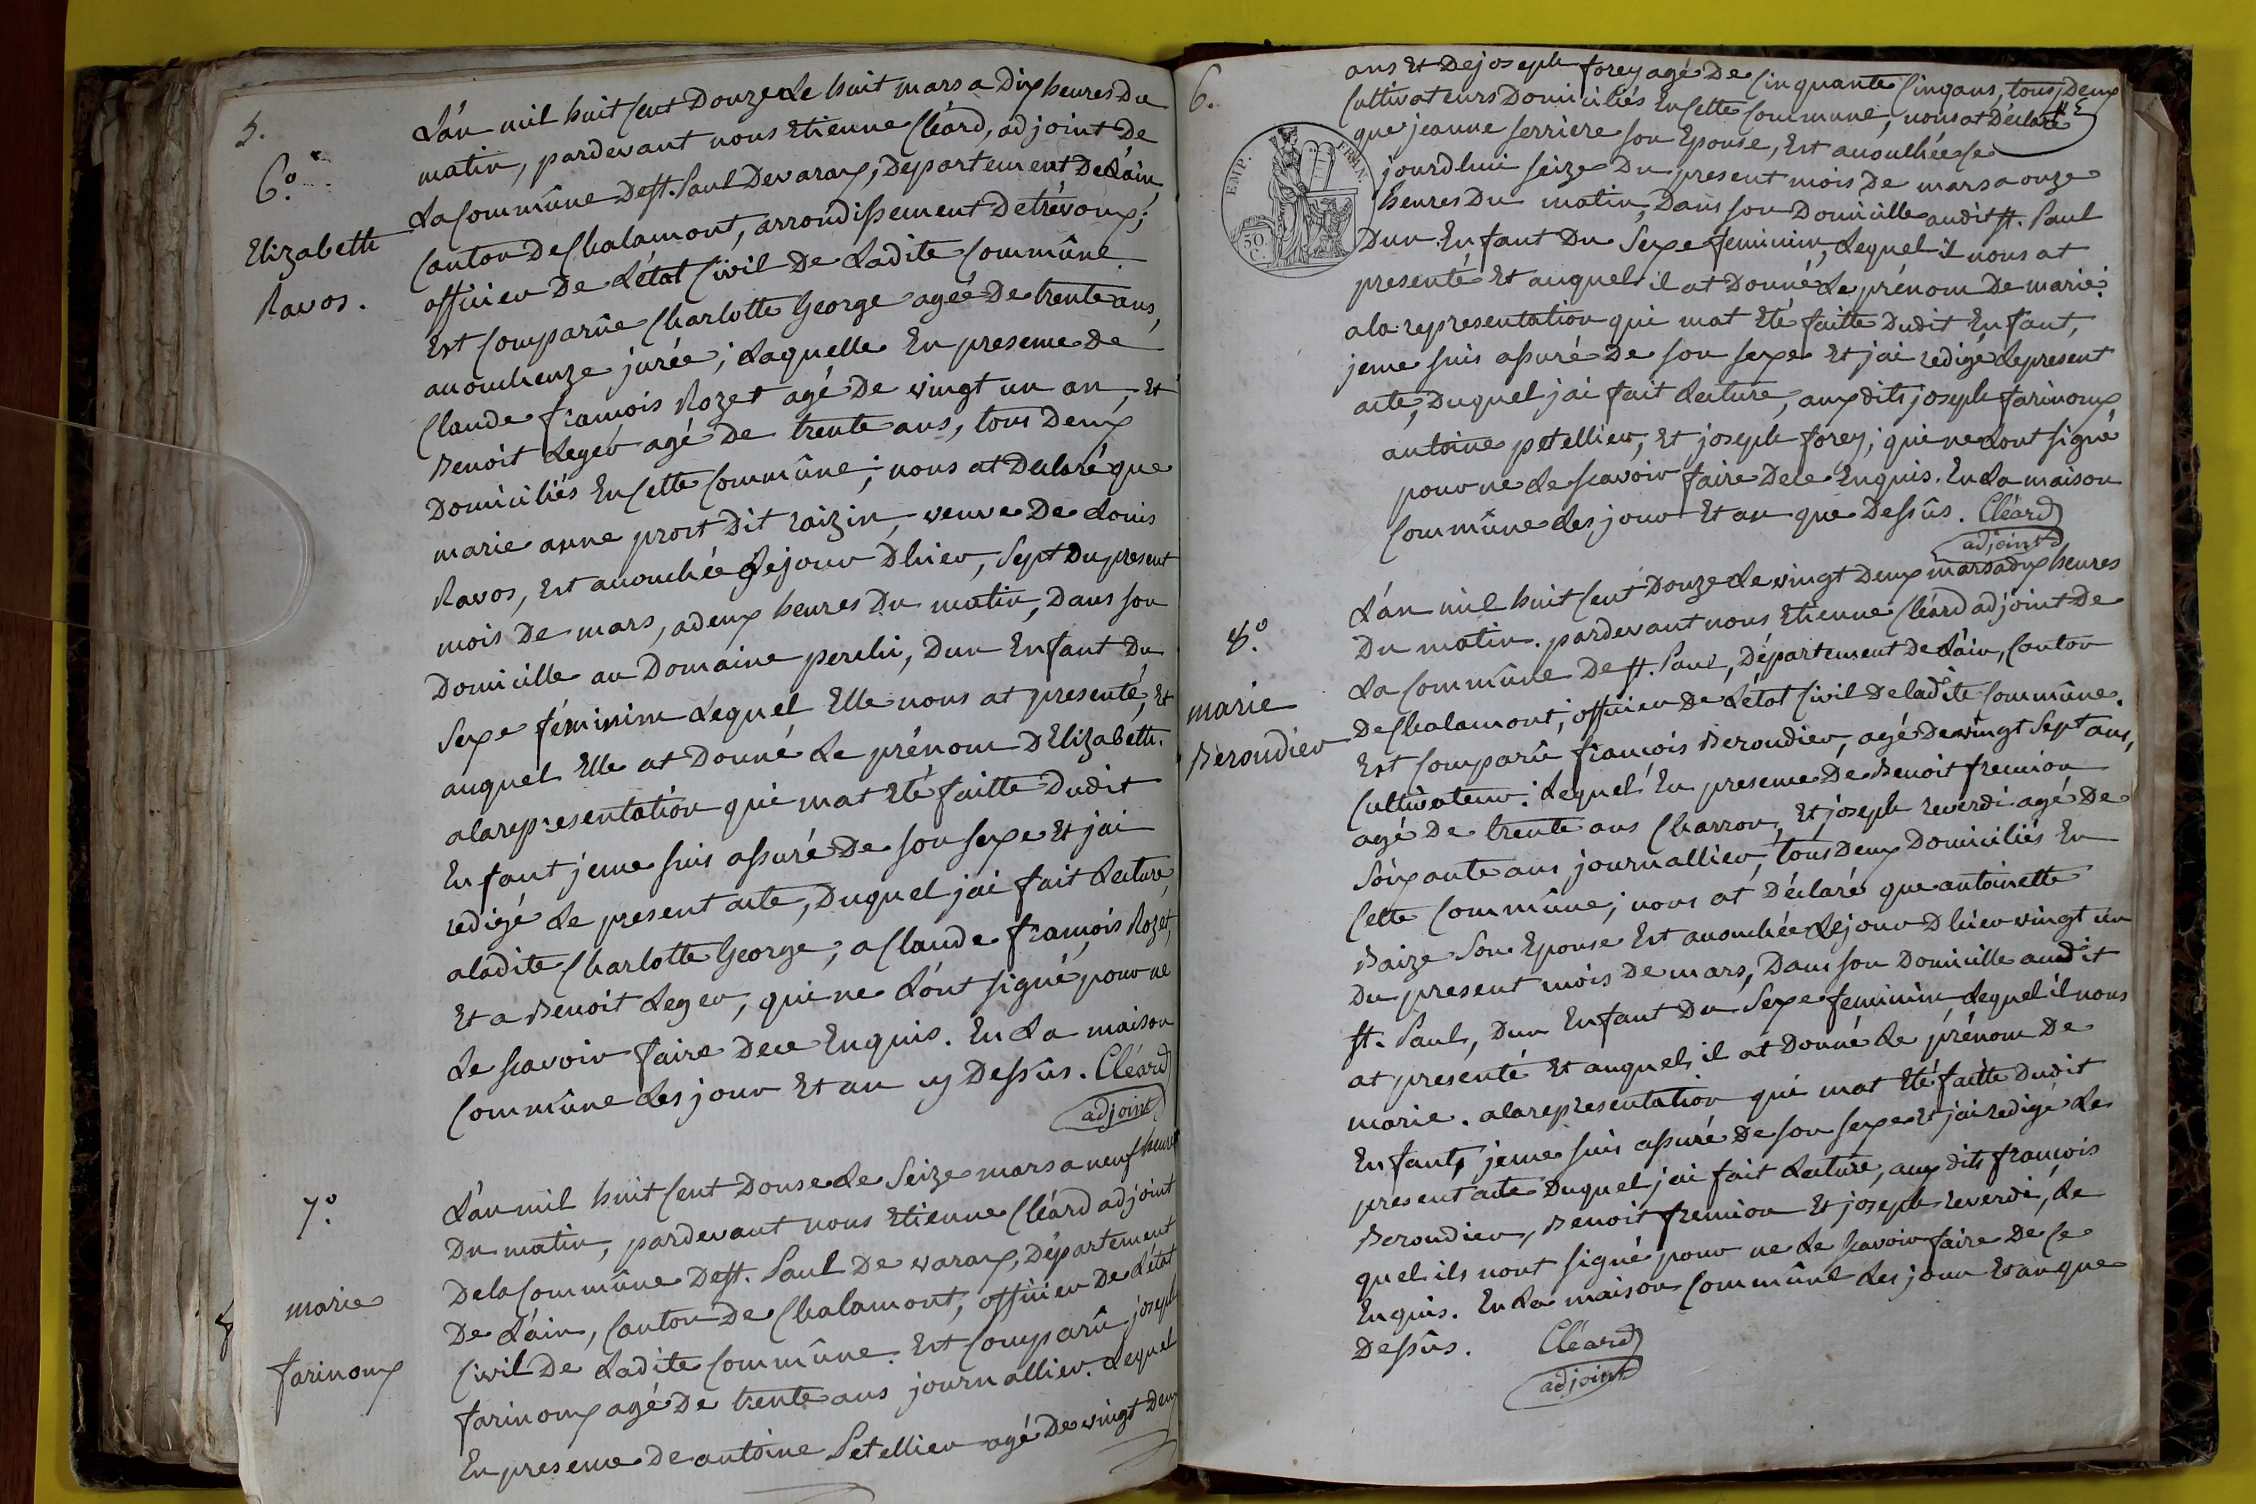 5.
6.º
Elizabeth
Ravos.
L'an mil huit Cent Douze Le huit mars a Dix heures Du
matin, pardevant nous Etienne Cléard, adjoint De
La Commûne De St. Paul Devarax, Departement De L'ain,
Canton De Chalamont, arrondissement De trévoux;
officier De L'état Civil De Ladite Commûne.
Est Comparûe Charlotte George ageé De trente ans,
accoucheuze jurée; Laquelle En presence De
Claude françois Rozet agé De vingt un an, Et
Benoit Leger agé De trente ans, tous Deux
Domiciliés En Cette Commûne; nous at Declaré que
marie anne prost Dit raizin, veuve De Louis
Ravos, Est accouchée Le jour D hier, Sept Du present
mois De mars, a deux heures Du matin, Dans son
Domicille au Domaine perchi, Dun Enfant Du
Sexe féminim Lequel Elle nous at presenté, Et
auquel Elle at Donné Le prénom D Elizabeth.
a la representation qui mat Eté faitte Dudit
Enfant je me suis assuré De son sexe Et jai
redigé Le present acte, Duquel jai fait Lecture,
a ladite Charlotte George; a Claude françois Rozet,
Et a Benoit Leger, qui ne L'ont signé pour ne
Le scavoir faire De ce Enquis. En La maison
Commûne Les jour Et an cy Dessûs. Cléard
adjoint
7.º
marie
farinoux
L'an mil huit Cent Douse Le Seize mars a neuf heures
Du matin, pardevant nous Etienne Cléard adjoint
De la Commûne De St. Paul De varax, Département
De L'ain, Canton De Chalamont, officier De L'état
Civil De Ladite Commûne. Est Comparû joseph
farinoux agé De trente ans journallier. Lequel
En presence De antoine Petellier agé De vingt Deux
6.
EMP. FRAN.
50 C.
ans Et De joseph forey agé De Cinquante Cinq ans, tous Deux
Cultivateurs Domiciliés En Cette Commune, nous at Déclaré
que jeanne serriere son Epouse, Est accouchée Ce
jourdhui seize Du present mois De mars a onze
heures Du matin, Dans son Domicille audit St. Paul
Dun Enfant Du Sexe feminim, Lequel il nous at
presenté Et auquel il at Donné Le prénom De marie.
a la representation qui mat Eté faitte Dudit Enfant,
je me suis assuré De son sexe Et jai redigé Le present
acte, Duquel jai fait Lecture, aux dits joseph farinoux,
antoine petellier, Et joseph forey; qui ne Lont signé
pour ne Le scavoir faire De ce Enquis. En La maison
Commûne Les jour Et an que Dessûs. Cléard
adjoint
8.º
marie
Beroudier
L'an mil huit Cent Douze Le vingt Deux mars a dix heures
Du matin. pardevant nous Etienne Cléard adjoint De
La Commûne De St. Paul, Département De L'ain, Canton
De Chalamont, officier De L'état Civil De ladite Commûne.
Est Comparû françois Beroudier, agé De vingt Sept ans,
Cultivateur; Lequel En presence De Benoit fremion
agé De trente ans Charron, Et joseph reverdi agé De
Soixante ans journallier, tous Deux Domiciliés En
Cette Commûne; nous at Déclaré que antoinette
Baize Son Epouse Est accouchée Le jour D hier vingt un
Du present mois De mars, Dans son Domicille audit
St. Paul, Dun Enfant Du Sexe feminim Lequel il nous
at presenté Et auquel il at Donné Le prénom De
marie. a la representation qui mat Eté faitte Dudit
Enfant, je me suis assuré De son sexe Et jai redigé Le
present acte Duquel jai fait Lecture, aux dits françois
Beroudier, Benoit fremion Et joseph reverdi, Le
quel ils nont signé pour ne Le scavoir faire De Ce
Enquis. En La maison Commûne Les jour Et an que
Dessûs. Cléard
adjoint